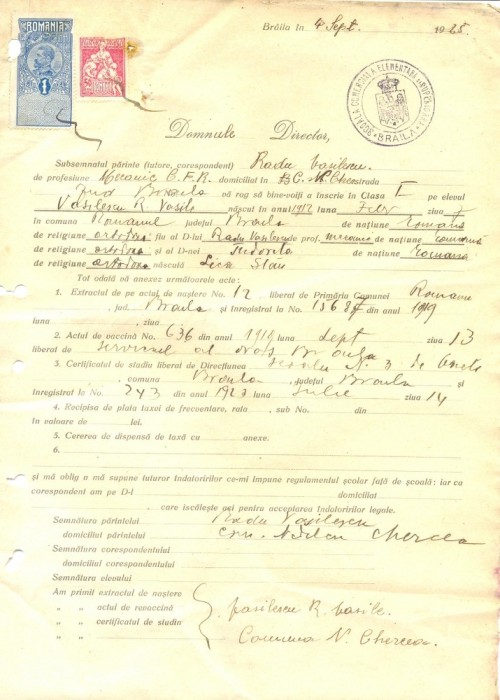 ROMANIA
1
Brăila în 4 Sept. 1925.
ȘCOALA COMERCIALĂ ELEMENTARĂ
BRĂILA
Domnule Director,
Subsemnatul părinte (tutore, corespondent) Radu Vasilescu.
de profesiune Mecanic C.F.R. domiciliat în strada
vă rog să bine-voiți a înscrie în Clasa I pe elevul
Vasilescu R Vasile născut în anul 1912 luna Febr ziua
în comuna Romanul județul Braila de națiune Română
de religiune ortodoxă fiu al D-lui Radu Vasilescu de prof. mecanic de națiune română
de religiune ortodoxa și al D-nei Teodora de națiune Romana
de religiune ortodoxa născută Lica Stan
Tot odată vă anexez următoarele acte:
1. Extractul de pe actul de naștere No. 12 liberat de Primăria Comunei Romanu
, jud. Braila și înregistrat la No. 15687 din anul 1919
luna , ziua
2. Actul de vaccină No. 636 din anul 1918 luna Sept , ziua 13
liberat de serviciul al
3. Certificatul de studii liberat de Direcțiunea Scoala N. 3 de baeti
, comuna Braila , județul Braila și
înregistrat la No. 243 din anul 1923 luna Iulie ziua 14
4. Recipisa de plata taxei de frecventare, rata , sub No. din
în valoare de lei.
5. Cererea de dispensă de taxă cu anexe.
6.
și mă oblig a mă supune tuturor îndatoririlor ce-mi impune regulamentul școlar față de școală: iar ca
corespondent am pe D-l domiciliat
, care iscălește aci pentru acceptarea îndatoririlor legale.
Semnătura părintelui Radu Vasilescu
domiciliul părintelui Chercea
Semnătura corespondentului
domiciliul corespondentului
Semnătura elevului
Am primit extractul de naștere
„ „ actul de revaccină Vasilescu R. Vasile.
„ „ certificatul de studiu
„ „ Comuna N. Chercea.